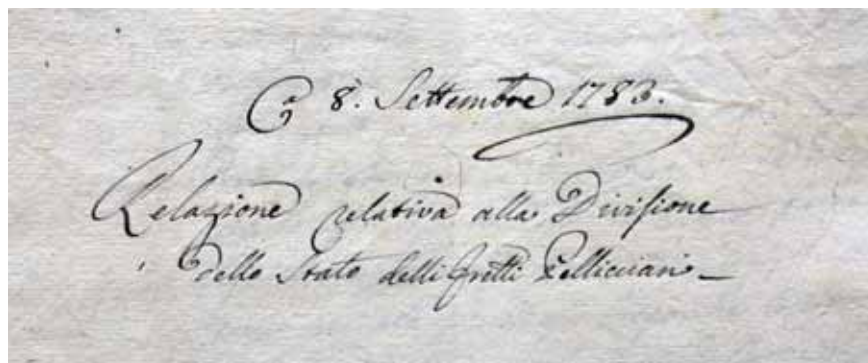 8. Settembre 1783.
Relazione relativa alla Divisione
dello Stato delli frelli Pellicciari